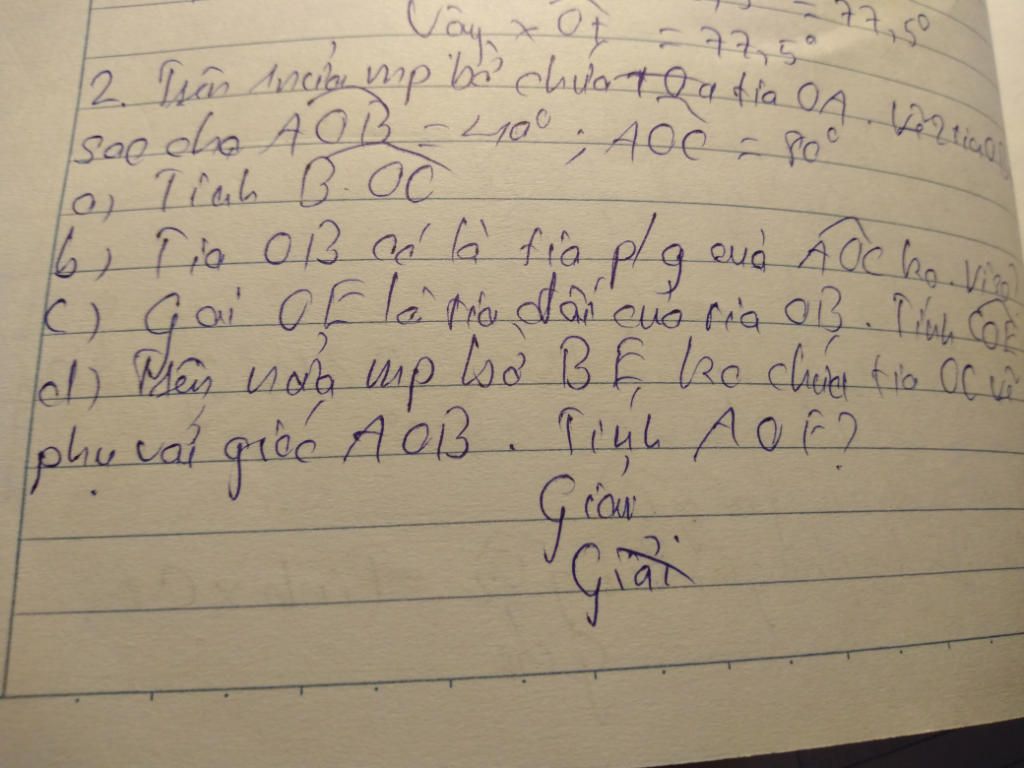 = 77,5°
Vậy xOt = 77,5°
2. Trên nửa mp bờ chứa tia OA. Vẽ 2 tia
sao cho AOB = 40° ; AOC = 80°
a) Tính BOC
b) Tia OB có là tia p/g của AOC ko. Vì sao?
c) Gọi OE là tia đối của tia OB. Tính COE
d) Trên nửa mp bờ BE ko chứa tia OC vẽ
phụ với góc AOB. Tính AOF?
Giải
Giải